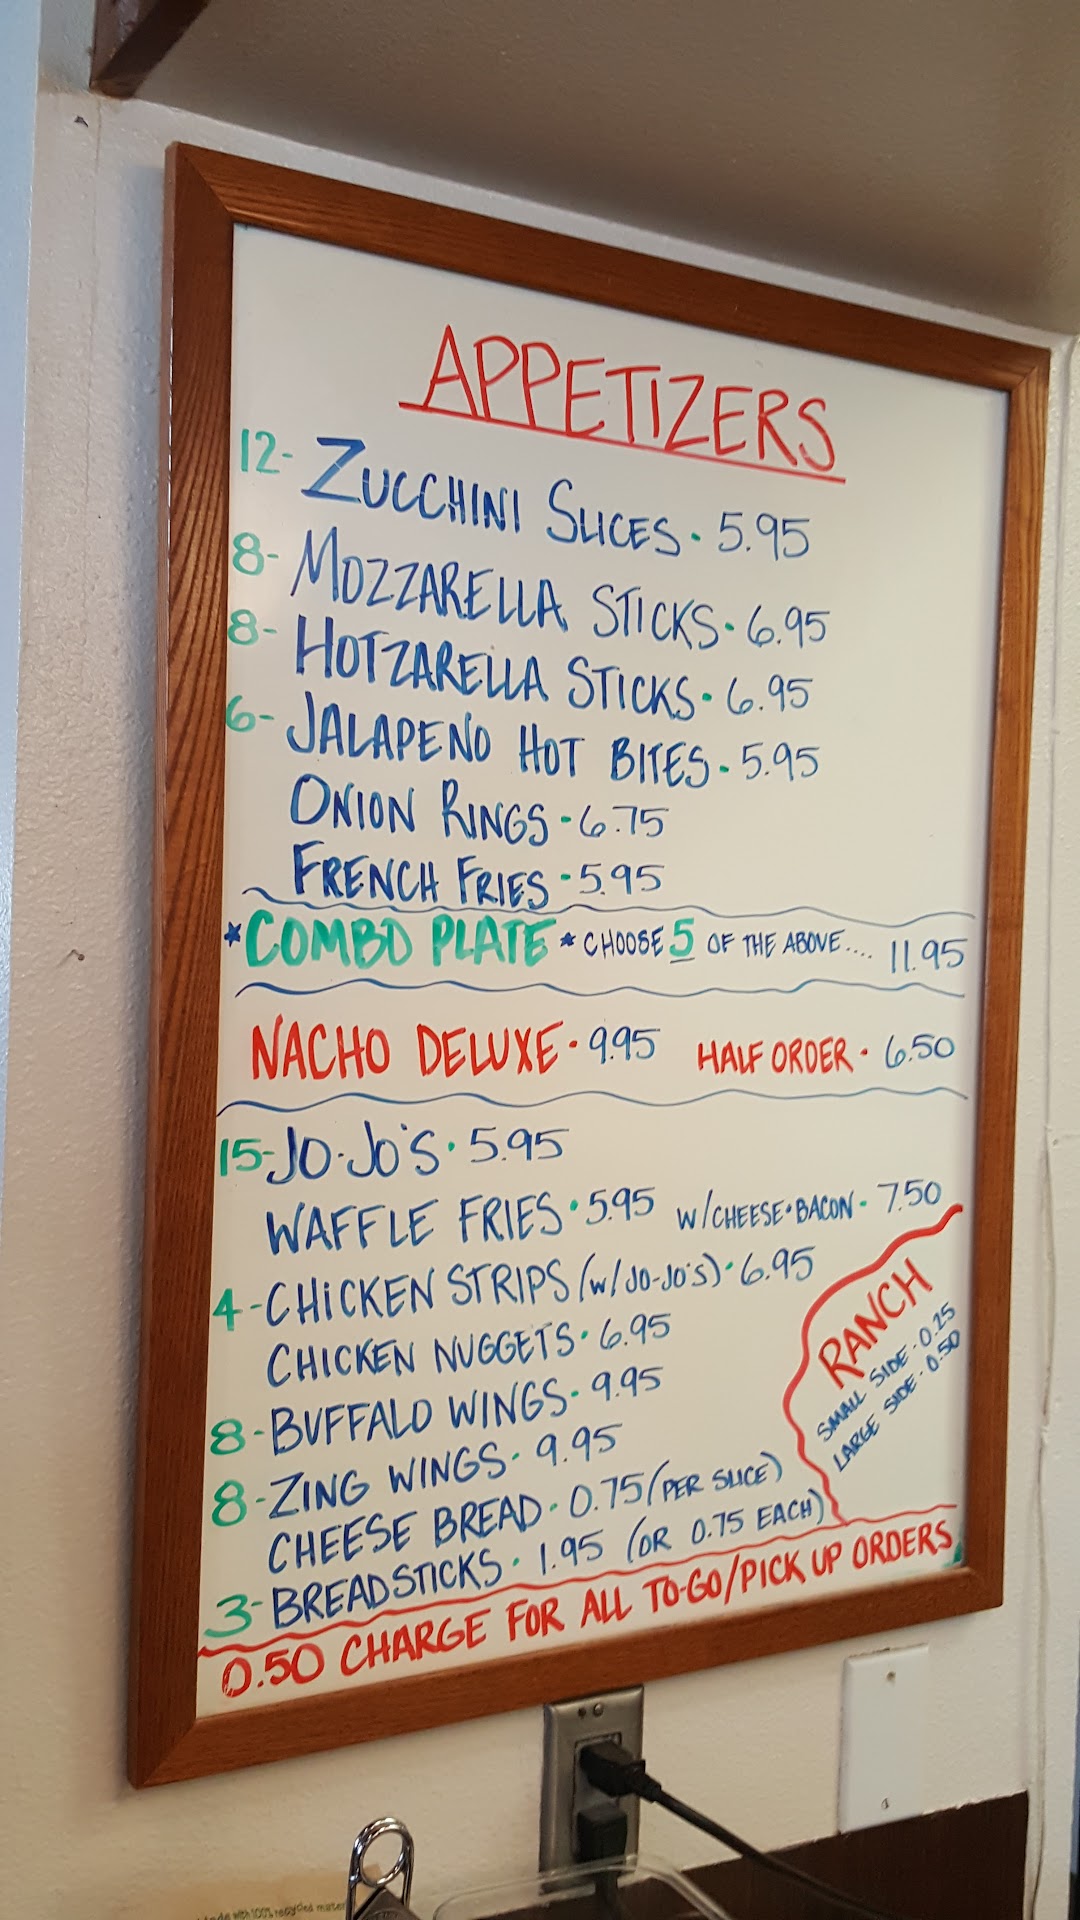 APPETIZERS
12- ZUCCHINI SLICES · 5.95
8- MOZZARELLA STICKS · 6.95
8- HOTZARELLA STICKS · 6.95
6- JALAPENO HOT BITES · 5.95
ONION RINGS - 6.75
FRENCH FRIES - 5.95
*COMBO PLATE* CHOOSE 5 OF THE ABOVE.... 11.95
NACHO DELUXE · 9.95 HALF ORDER · 6.50
15- JO-JO'S · 5.95
WAFFLE FRIES · 5.95 W/CHEESE·BACON - 7.50
4- CHICKEN STRIPS (W/JO-JO'S) · 6.95
CHICKEN NUGGETS · 6.95
8- BUFFALO WINGS - 9.95
8- ZING WINGS · 9.95
CHEESE BREAD · 0.75 (PER SLICE)
3- BREADSTICKS · 1.95 (OR 0.75 EACH)
RANCH
SMALL SIDE - 0.25
LARGE SIDE - 0.50
0.50 CHARGE FOR ALL TO-GO/PICK UP ORDERS
with 100% recycled mater